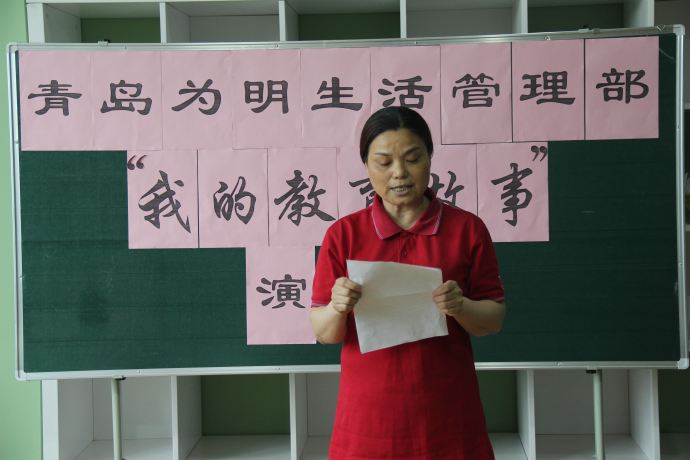 青岛为明生活管理部
“我的教育故事”
演